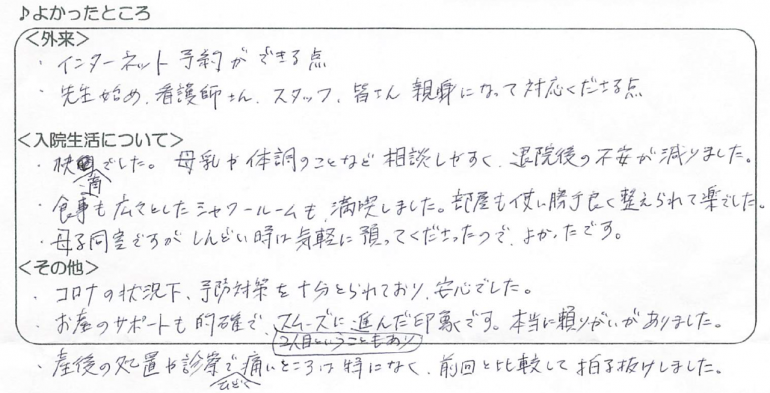 ♪よかったところ
<外来>
・インターネット予約ができる点
・先生始め、看護師さん、スタッフ、皆さん親身になって対応くださる点
<入院生活について>
・快適でした。母乳や体調のことなど相談しやすく、退院後の不安が減りました。
・食事も広々としたシャワールームも、満喫しました。部屋も使い勝手良く整えられて楽でした。
・母子同室ですがしんどい時は気軽に預ってくださったので、よかったです。
<その他>
・コロナの状況下、予防対策を十分とられており、安心でした。
・お産のサポートも的確で、スムーズに進んだ印象です。本当に頼りがいがありました。
2人目ということもあり
・産後の処置や診察でひどく痛いところは特になく、前回と比較して拍子抜けしました。